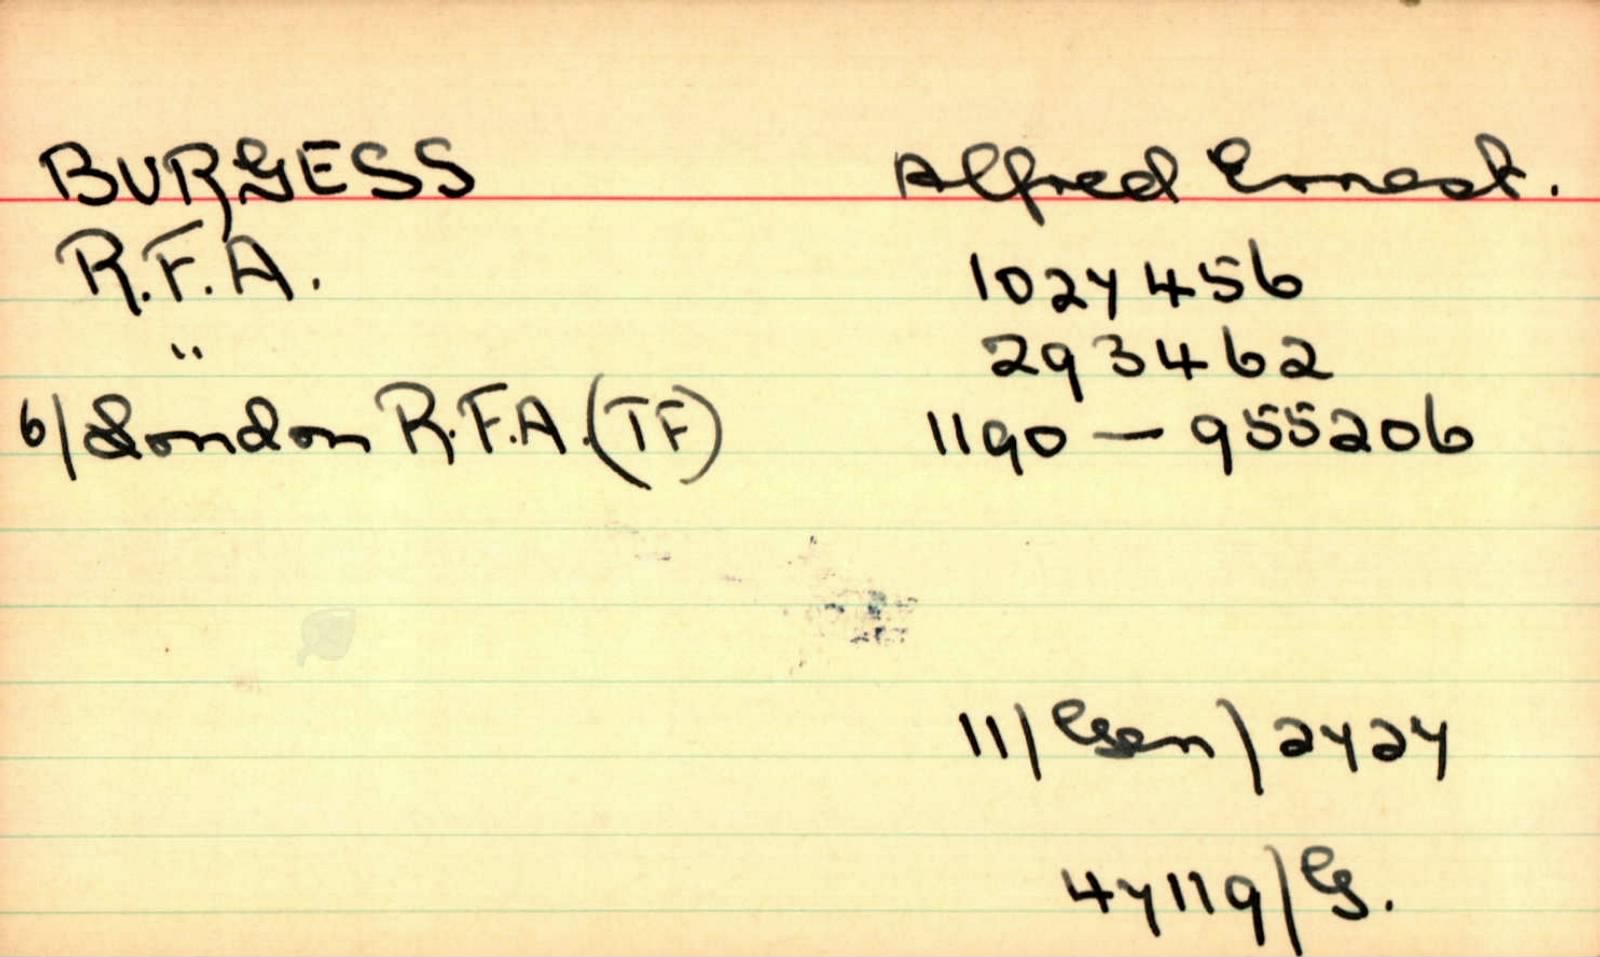 BURGESS Alfred Ernest.
R.F.A. 1027456
" 293462
6/London R.F.A.(TF) 1190 — 955206
11/Gen/2727
47119/G.